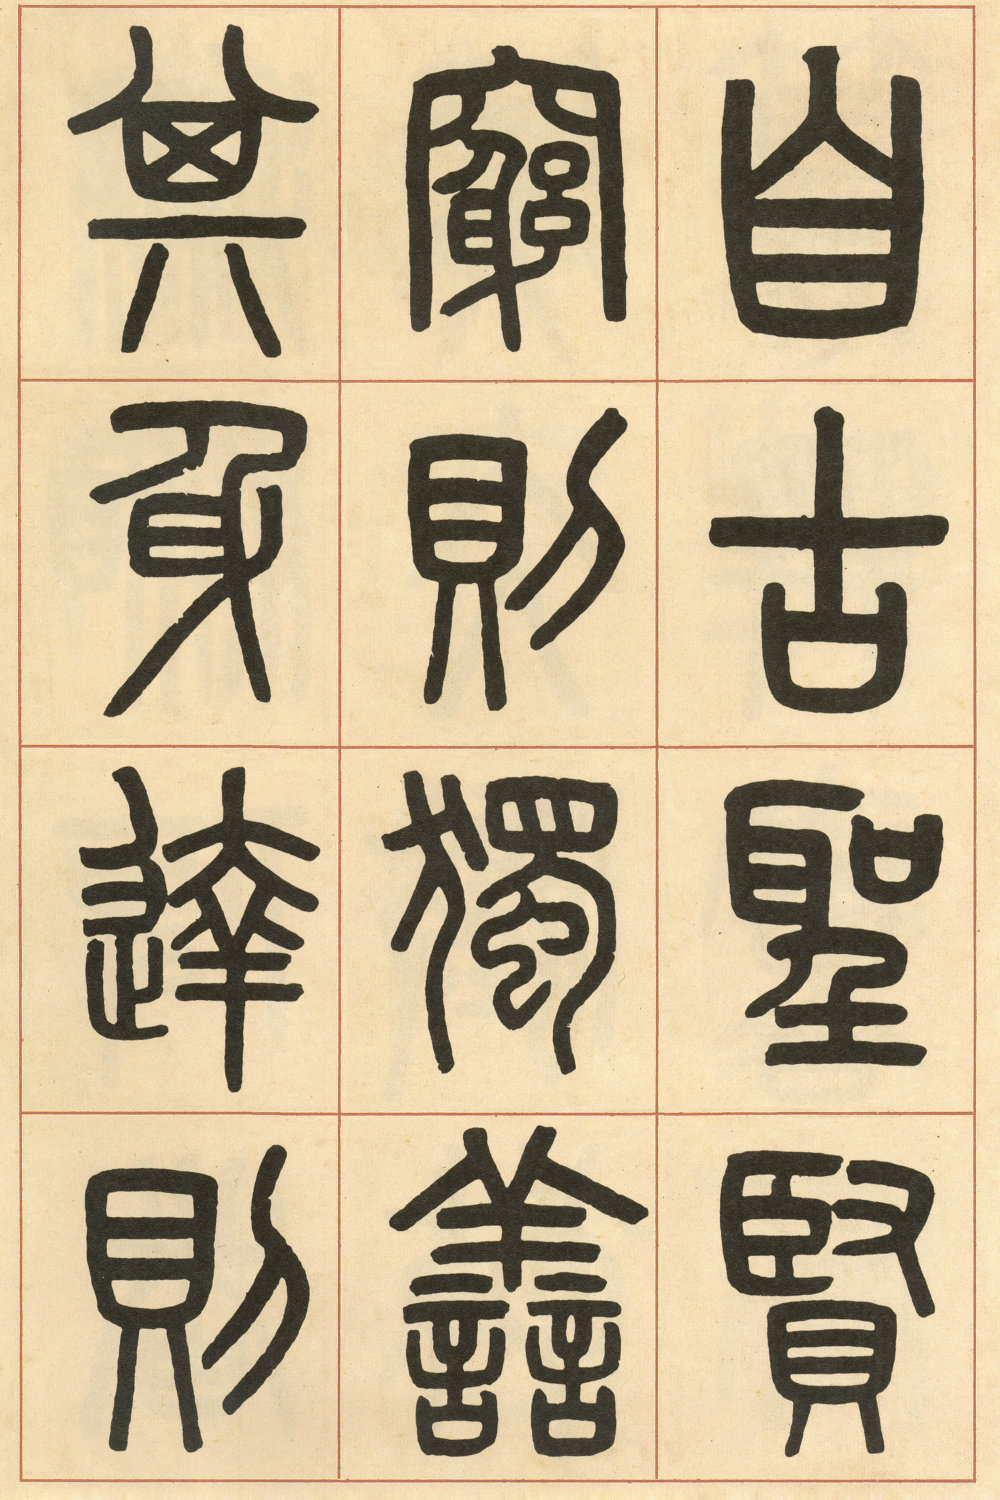 自古聖賢
窮則獨譱
其身達則